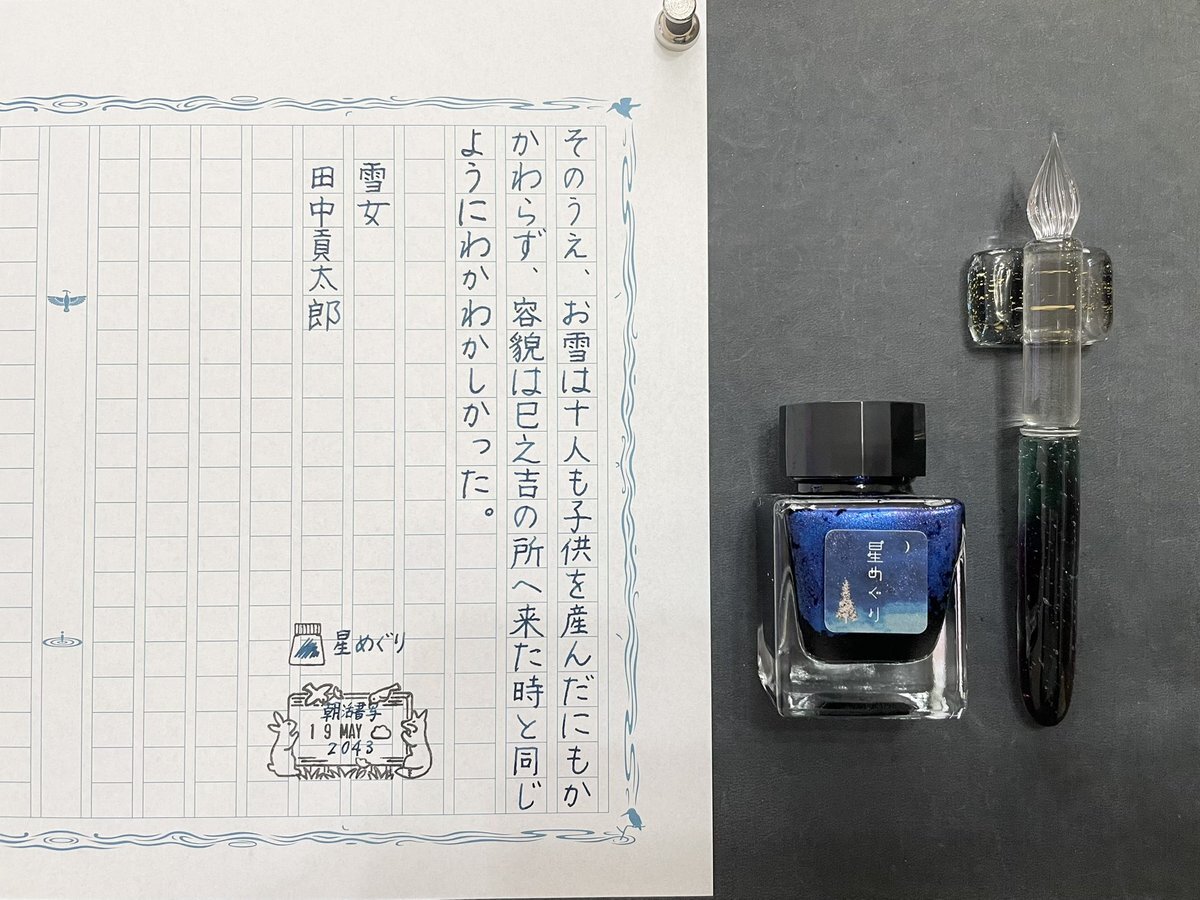 そのうえ、お雪は十人も子供を産んだにもか
かわらず、容貌は巳之吉の所へ来た時と同じ
ようにわかわかしかった。
雪女
田中貢太郎
星めぐり
朝活書写
19 MAY
2043
星めぐり